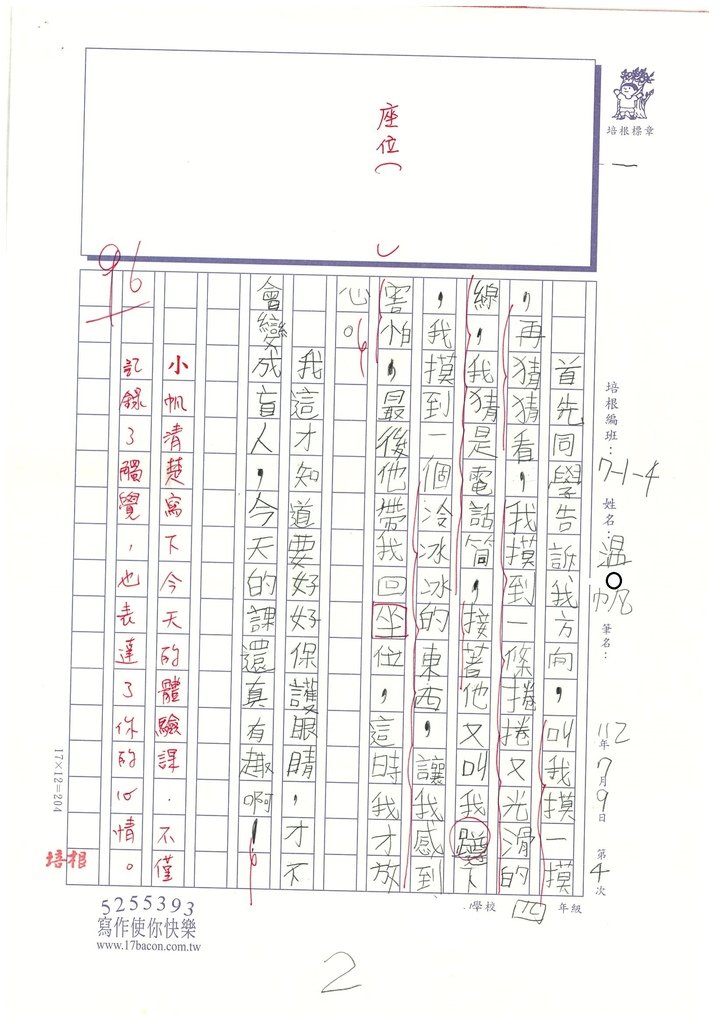 培根標章
一
座位（ ）
96
培根編班：7-1-4 姓名：溫○帆 筆名： 112年7月9日 第4次
首先同學告訴我方向，叫我摸一摸
，再猜猜看，我摸到一條捲捲又光滑的
線，我猜是電話筒，接著他又叫我蹲下
，我摸到一個冷冰冰的東西，讓我感到
害怕，最後他帶我回坐位，這時我才放
心。
我這才知道要好好保護眼睛，才不
會變成盲人，今天的課還真有趣啊！
小帆清楚寫下今天的體驗課，不僅
記錄了觸覺，也表達了你的心情。
培根
17×12=204
學校 四 年級
5255393
寫作使你快樂
www.17bacon.com.tw
2